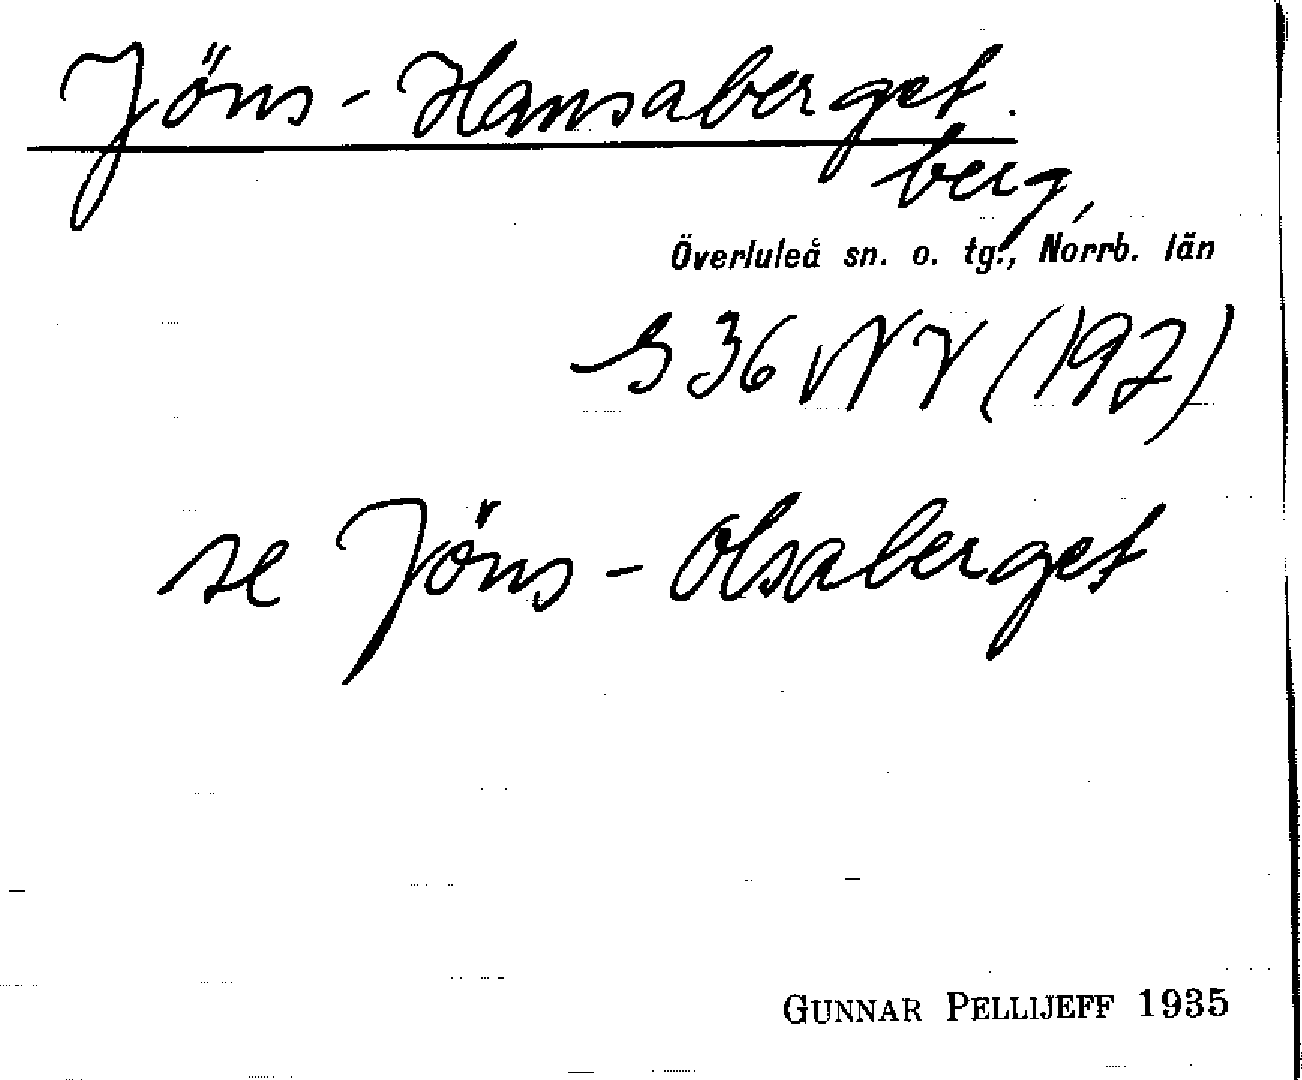 Jöns-Hansaberget.
berg,
Överluleå sn. o. tg., Norrb. län
S 36 NV (197)
se Jöns-Olsaberget
GUNNAR PELLIJEFF 1935